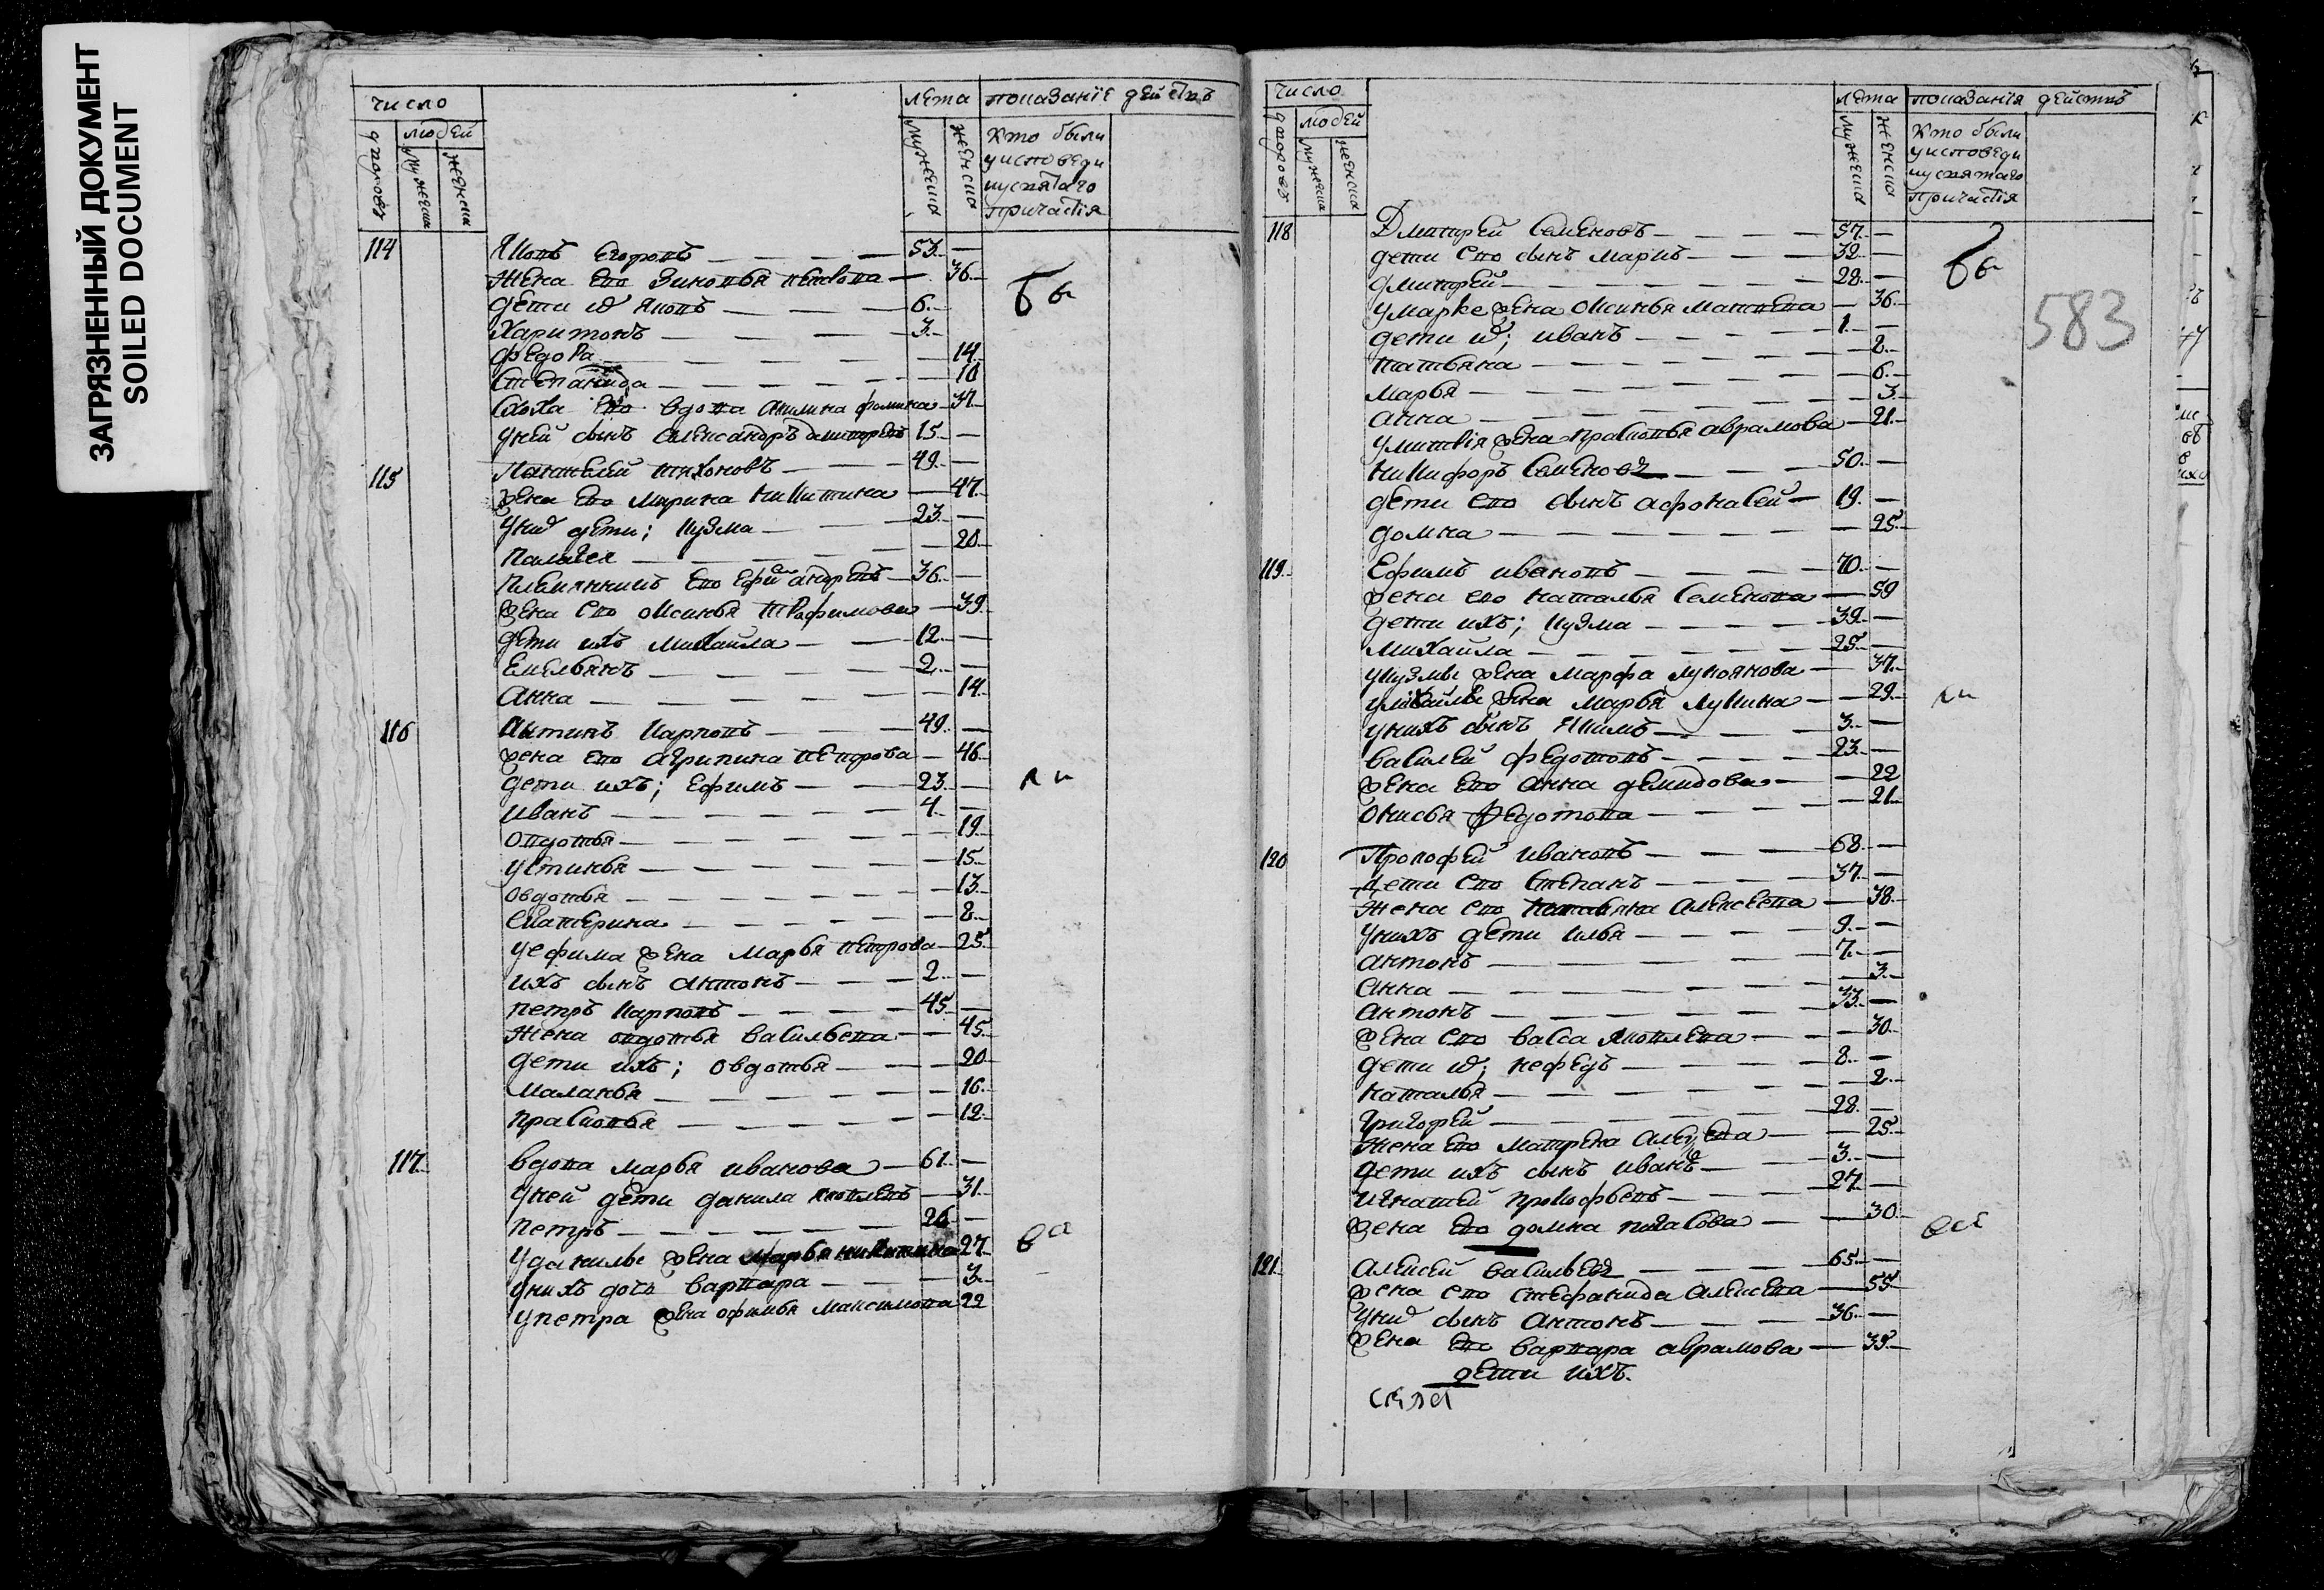 ЗАГРЯЗНЕННЫЙ ДОКУМЕНТ
SOILED DOCUMENT
число
людей
дворовъ
мужеска
женска
лета
показанїе действъ
мужеска
женска
кто были
уисповеди
исвятаго
причастїя
114 Яковъ Егоровъ 53
жена его Зиновья 36
дети их яковъ 6
Харитонъ 3
федора 14
Степанида 10
сноха его вдова акилина фомина 37
уней сынъ александръ дмитревъ 15
115 Пантелей тихоновъ 49
жена его Марина никитина 47
у них дети; кузма 23
палагея 20
племянникъ его Ефим андревъ 36
жена его оксинья трофимова 39
дети ихъ михаила 12
Емельянъ 2
Анна 14
116 Антипъ карповъ 49
жена его агрипина петрова 46
дети ихъ; Ефимъ 23
Иванъ 4
овдотья 19
устинья 15
овдотья 13
екатерина 8
уефима жена марья петрова 25
ихъ сынъ антонъ 2
петръ карповъ 45
жена овдотья васильева 45
дети ихъ; овдотья 20
маланья 16
прасковья 12
117 вдова марья иванова 61
уней дети данила яковлевъ 31
петръ 26
уданилы жена марья никитина 27
унихъ дочь варвара 3
упетра жена офимья максимова 22
число
людей
дворовъ
мужеска
женска
лета
показанїя действъ
мужеска
женска
кто были
уисповеди
исвятаго
причастїя
583
118 Дмитрей Семеновъ 57
дети его сынъ маркъ 32
дмитрей 28
умарке жена оксинья матвева 36
дети их; иванъ 1
татьяна 8
марья 6
анна 3
умитрїя жена прасковья аврамова 21
никифоръ Семеновъ 50
дети его сынъ афонасей 19
домна 25
119 Ефимъ ивановъ 70
жена его наталья Семенова 59
дети ихъ; кузма 39
михаила 25
укузмы жена марфа лукоянова 37
умихайлы жена марья лукина 29
унихъ сынъ якимъ 3
василей федотовъ 23
жена его анна демидова 22
онисья федотова 21
120 Прокофей ивановъ 68
дети его степанъ 37
жена его татьяна алексева 38
унихъ дети илья 9
антонъ 7
анна 3
антонъ 33
жена его васса яковлева 30
дети их; нефедъ 8
наталья 2
григорей 28
жена его матрена 25
дети ихъ сынъ иванъ 3
игнатей прокофьевъ 27
жена его домна 30
121 алексей васильевъ 65
жена его стефанида алексева 55
у них сынъ антонъ 36
жена его варвара аврамова 39
дети ихъ.